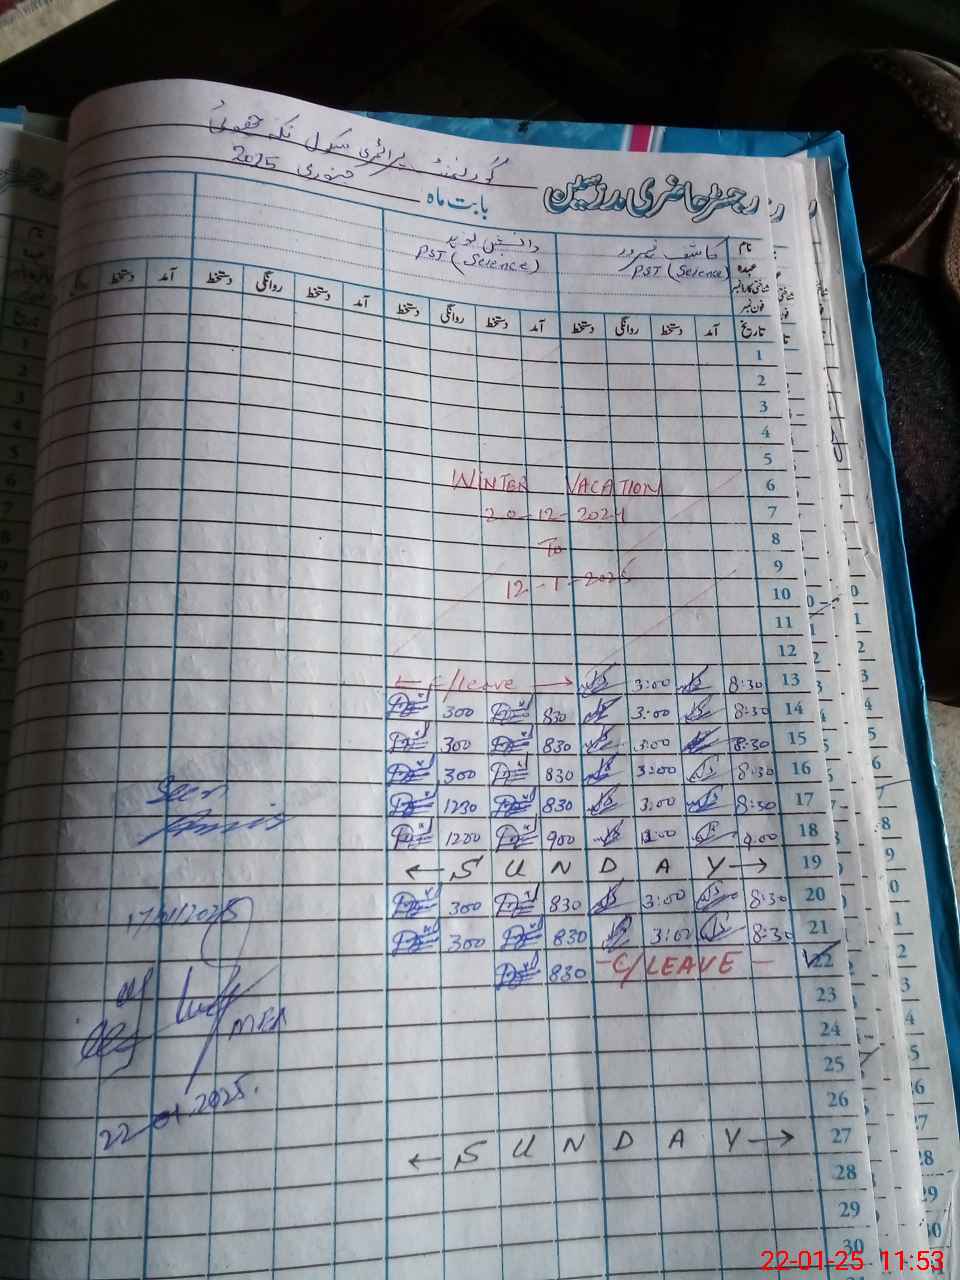 گورنمنٹ پرائمری سکول
رجسٹر حاضری مدرسین
بابت ماہ جنوری 2025
نام کاشف سرور دانش نوید
عہدہ PST (Science) PST (Science)
شناختی کارڈ نمبر
فون نمبر
تاریخ آمد دستخط روانگی دستخط آمد دستخط روانگی دستخط آمد دستخط روانگی دستخط آمد دستخط
1
2
3
4
5
6 WINTER VACATION
7 20-12-2024
8 To
9
10 12-1-2025
11
12
13 8:30 3:00 ← C/leave →
14 8:30 3:00 830 300
15 8:30 3:00 830 300
16 8:30 3:00 830 300
17 8:30 3:00 830 1230
18 9:00 900 1200
19 ← S U N D A Y →
20 8:30 3:00 830 300
21 8:30 3:00 830 300
22 C/LEAVE 830
23
24
25
26
27 ← S U N D A Y →
28
29
30
Seen
17/01/2025
MEA
22-01-2025.
22-01-25 11:53